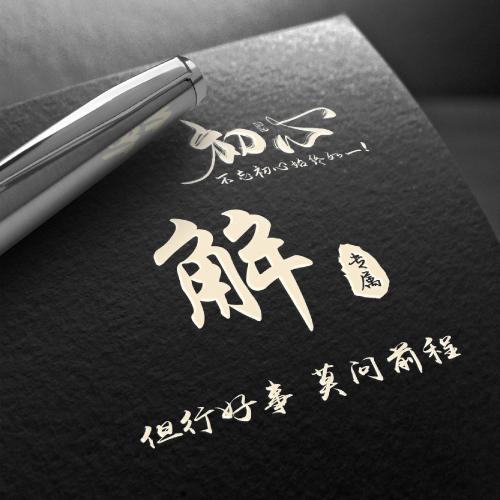 初心
不忘初心始终如一!
解
专属
但行好事 莫问前程